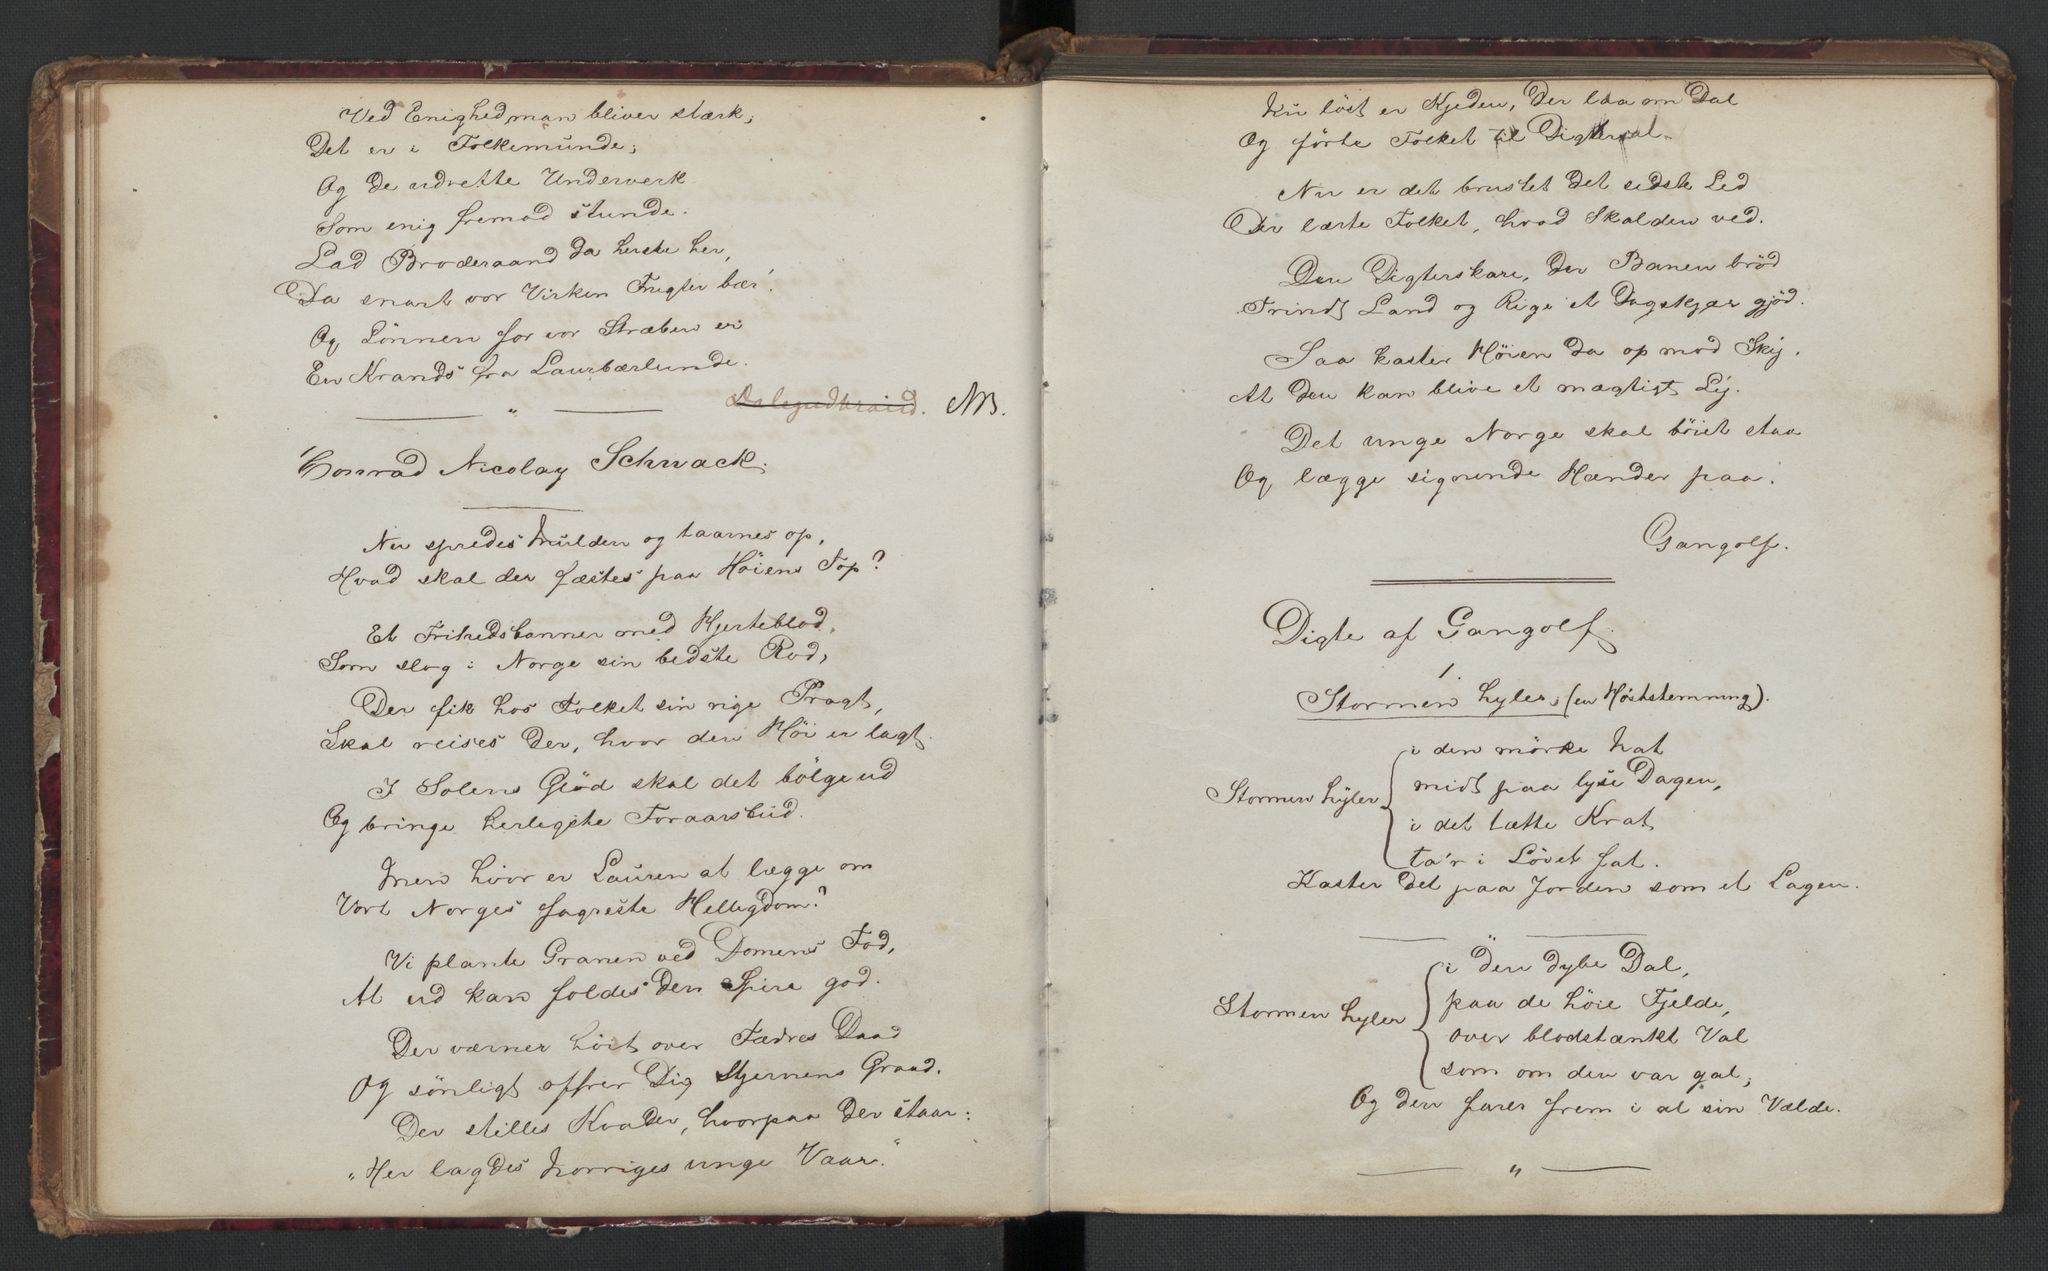 Ved Enighed man bliver stærk;
Det er i Folkemunde;
Og de udrette Underverk
Som enig fremad stunde.
Lad Broderaand da herske her,
Da snart vor Virken Frugter bær!
Og Lønnen for vor Stræben er
En Krands fra Laurbærlunde.
NB.
Conrad Nicolay Schwach.
Nu spredes Mulden og taarnes op,
Hvad skal der fæstes paa Høiens Top?
Et Frihedsbanner med Hjerteblod,
Som slog i Norge sin bedste Rod,
Der fik hos Folket sin rige Pragt,
Skal reises der, hvor den Høi er lagt.
I Solens Glød skal det bølge ud
Og bringe herligste Foraarsbud.
Men hvor er Lauren at lægge om
Vort Norges fagreste Helligdom?
Vi plante Granen ved Domens Fod,
At ud kan foldes den Spire god.
Der værner høit over Fædres Daad
Og sønligt offrer Dig Stjernens Graad.
Der stilles Kvader, hvorpaa der staar:
"Her lagdes Norriges unge Vaar."
Nu løst er Kjeden, der laa om Dal
Og førte Folket til Digtersal.
Nu er det brustet det sidste Led
Der lærte Folket, hvad Skalden ved.
Den Digterskare, der Banen brød
Trindt Land og Rige et Dagskjær gjød.
Saa kaster Høien da op mod Sky,
At den kan blive et mægtigt Ly.
Det unge Norge skal bøiet staa
Og lægge signende Hænder paa!
Gangolf.
Digte af Gangolf.
1.
Stormen hyler, (en Høststemning).
i den mørke Nat
midt paa lyse Dagen,
Stormen hyler
i det tætte Krat
ta'r i Løvet fat.
Kaster det paa Jorden som et Lagen.
i den dybe Dal,
paa de høie Fjelde,
Stormen hyler
over blodstænkt Val
som om den var gal;
Og den farer frem i al sin Vælde.